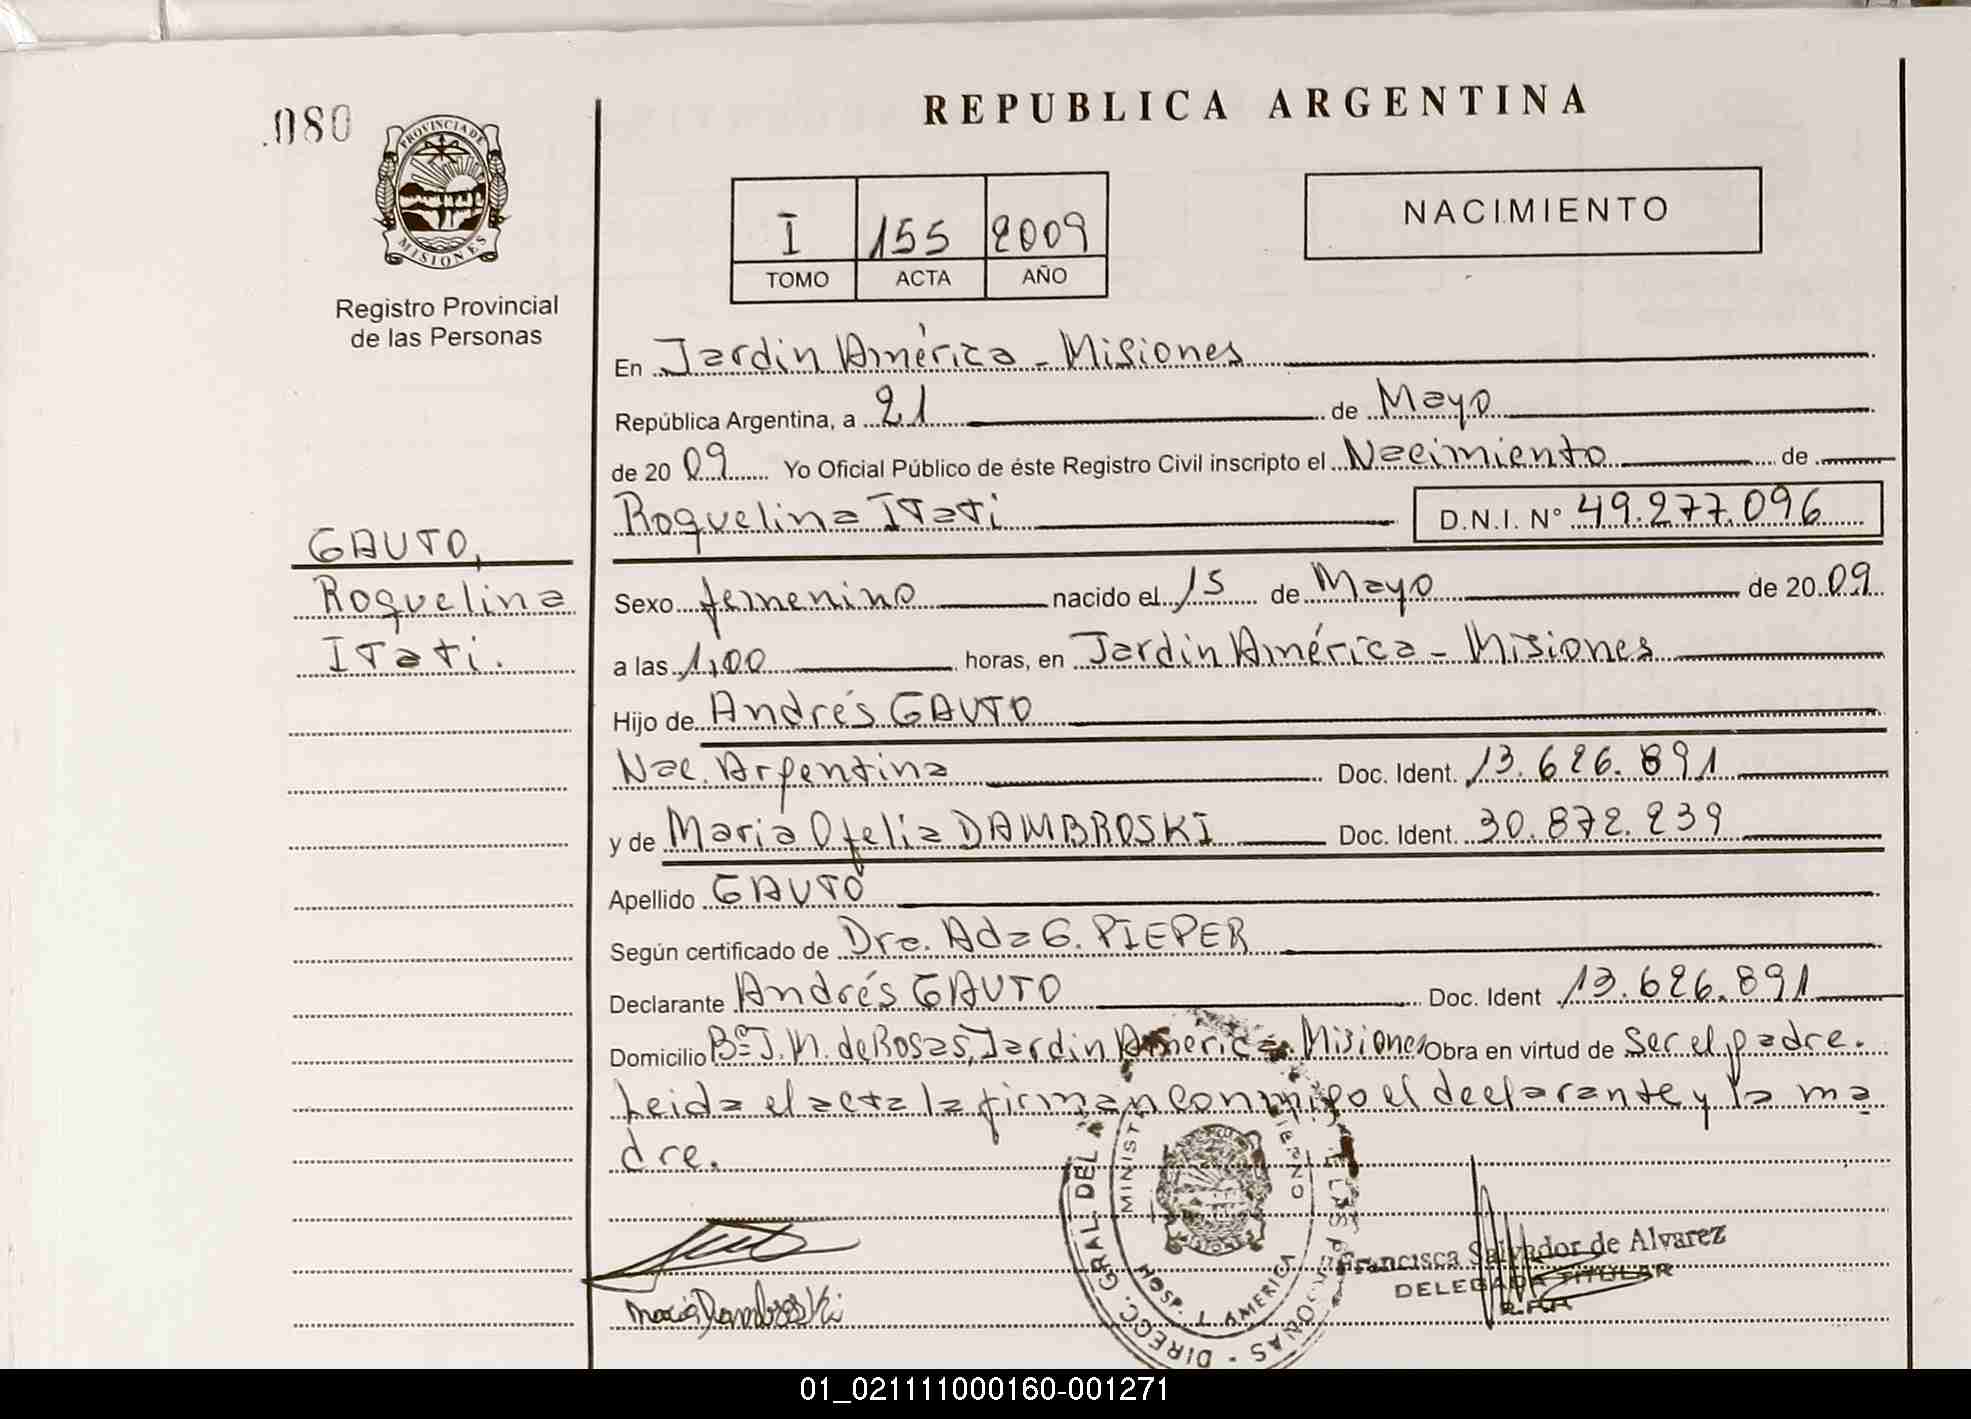 .080
PROVINCIA DE
MISIONES
Registro Provincial
de las Personas
REPUBLICA ARGENTINA
I 155 2009
TOMO ACTA AÑO
NACIMIENTO
En Jardín América - Misiones
República Argentina, a 21 de Mayo
de 2009 Yo Oficial Público de éste Registro Civil inscripto el Nacimiento de
Roquelina Itatí D.N.I. N° 49.277.096
GAUTO,
Roquelina
Itatí.
Sexo femenino nacido el 15 de Mayo de 2009
a las 1,00 horas, en Jardín América - Misiones
Hijo de Andrés GAUTO
Nac. Argentina Doc. Ident. 13.626.891
y de María Ofelia DAMBROSKI Doc. Ident. 30.872.239
Apellido GAUTO
Según certificado de Dra. Ada G. PIEPER
Declarante Andrés GAUTO Doc. Ident 13.626.891
Domicilio Bº J.M. de Rosas, Jardín América. Misiones Obra en virtud de Ser el padre.
Leida el acta la firman conmigo el declarante y la ma
dre.
María Dambroski
DIRECC. GRAL. DEL
HOSP. J. AMERICA
Francisca Salvador de Alvarez
DELEGADA TITULAR
01_021111000160-001271